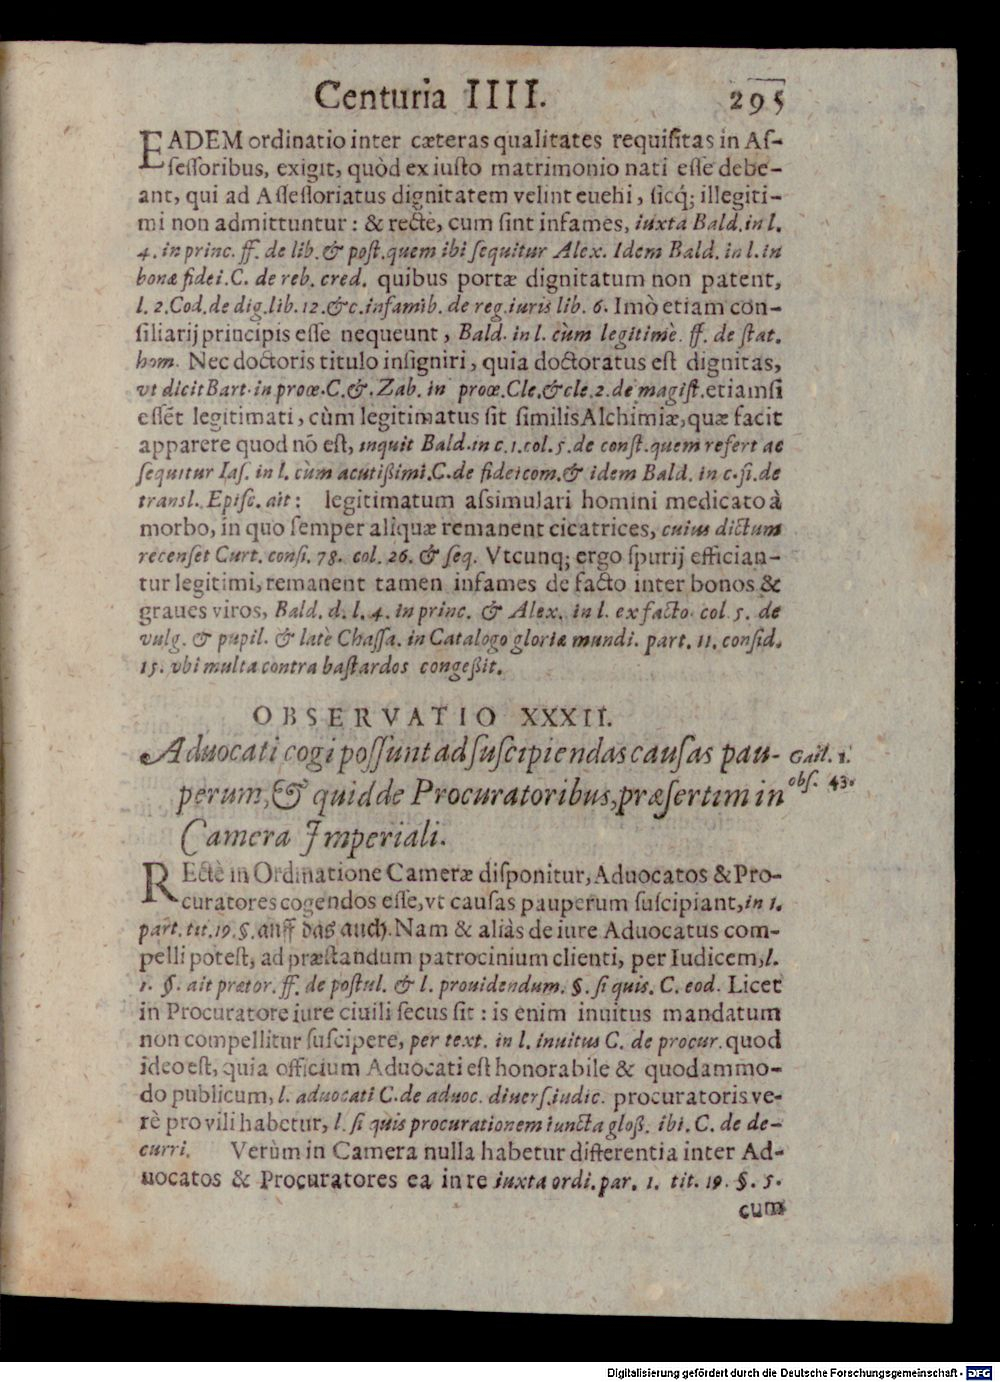 Centuria IIII. 295
EADEM ordinatio inter cæteras qualitates requisitas in As-
sessoribus, exigit, quòd ex iusto matrimonio nati esse debe-
ant, qui ad Assessoriatus dignitatem velint euehi, sicq́; illegiti-
mi non admittuntur: & rectè, cum sint infames, iuxta Bald. in l.
4. in princ. ff. de lib. & post. quem ibi sequitur Alex. Idem Bald. in l. in
bonæ fidei. C. de reb. cred. quibus portæ dignitatum non patent,
l. 2. Cod. de dig. lib. 12. & c. infamib. de reg. iuris lib. 6. Imò etiam con-
siliarij principis esse nequeunt, Bald. in l. cùm legitimè. ff. de stat.
hom. Nec doctoris titulo insigniri, quia doctoratus est dignitas,
vt dicit Bart. in proœ. C. &. Zab. in proœ. Cle. & cle. 2. de magist. etiamsi
essẽt legitimati, cùm legitimatus sit similis Alchimiæ, quæ facit
apparere quod nõ est, inquit Bald. in c. 1. col. 5. de const. quem refert ac
sequitur Ias. in l. cùm acutißimi. C. de fideicom. & idem Bald. in c. si. de
transl. Episc. ait: legitimatum assimulari homini medicato à
morbo, in quo semper aliquæ remanent cicatrices, cuius dictum
recenset Curt. consi. 78. col. 26. & seq. Vtcunq; ergo spurij effician-
tur legitimi, remanent tamen infames de facto inter bonos &
graues viros, Bald. d. l. 4. in princ. & Alex. in l. ex facto. col. 5. de
vulg. & pupil. & latè Chassa. in Catalogo gloriæ mundi. part. 11. consid.
15. vbi multa contra bastardos congeßit.
OBSERVATIO XXXII.
Aduocati cogi possunt ad suscipiendas causas pau-
perum, & quid de Procuratoribus, præsertim in
Camera Imperiali.
Gail. 1.
obs. 43.
REctè in Ordinatione Cameræ disponitur, Aduocatos & Pro-
curatores cogendos esse, vt causas pauperum suscipiant, in 1.
part. tit. 19. §. auff das auch. Nam & aliàs de iure Aduocatus com-
pelli potest, ad præstandum patrocinium clienti, per Iudicem, l.
1. §. ait prætor. ff. de postul. & l. prouidendum. §. si quis. C. eod. Licet
in Procuratore iure ciuili secus sit: is enim inuitus mandatum
non compellitur suscipere, per text. in l. inuitus C. de procur. quod
ideo est, quia officium Aduocati est honorabile & quodammo-
do publicum, l. aduocati C. de aduoc. diuers. iudic. procuratoris ve-
rè pro vili habetur, l. si quis procurationem iuncta gloß. ibi. C. de de-
curri. Verùm in Camera nulla habetur differentia inter Ad-
uocatos & Procuratores ea in re iuxta ordi. par. 1. tit. 19. §. 5.
cum
Digitalisierung gefördert durch die Deutsche Forschungsgemeinschaft - DFG